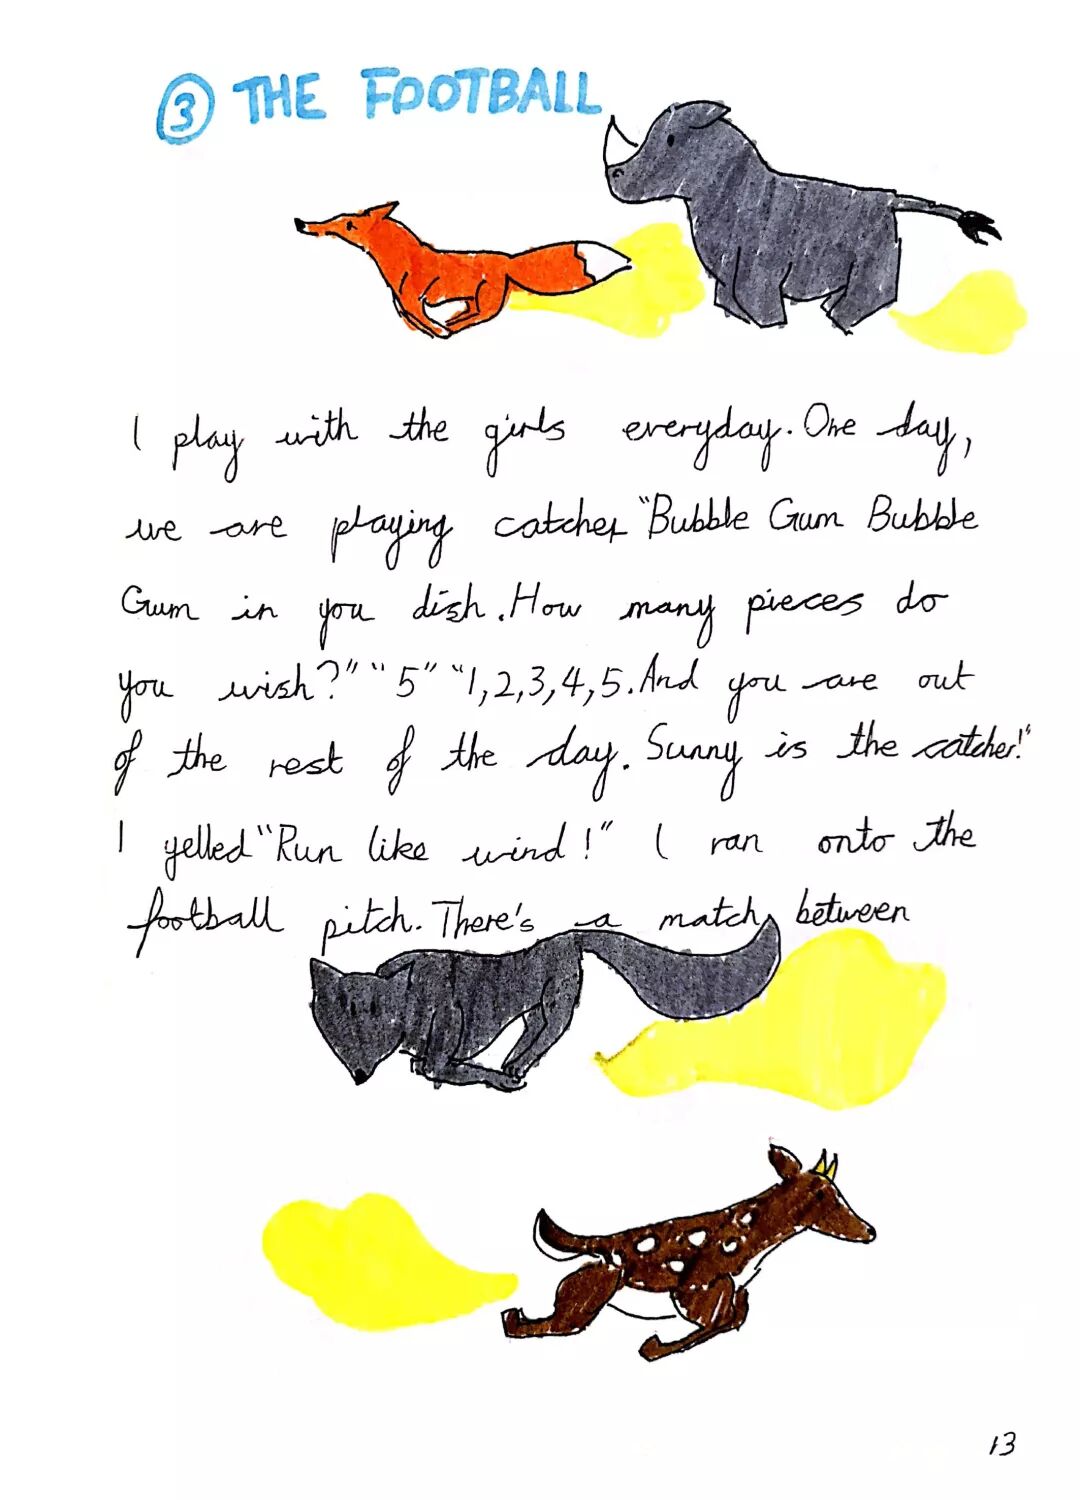 ③ THE FOOTBALL
I play with the girls everyday. One day,
we are playing catcher "Bubble Gum Bubble
Gum in you dish. How many pieces do
you wish?" "5" "1,2,3,4,5. And you are out
of the rest of the day. Sunny is the catcher!"
I yelled "Run like wind!" I ran onto the
football pitch. There's a match between
13